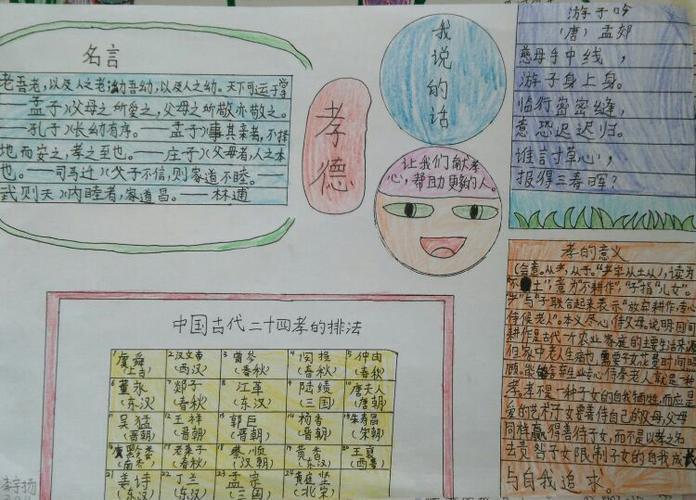 名言
老吾老,以及人之老;幼吾幼,以及人之幼。天下可运于掌
——孟子》父母之所爱之,父母之所敬亦敬之。
——孔子》长幼有序。——孟子》事其亲者,不择
地而安之,孝之至也。——庄子》父母者,人之本
也。——司马迁《父子不信,则家道不睦。——
武则天》内睦者,家道昌。——林逋
孝德
我说的话
让我们献孝
心,帮助更多的人。
游子吟
(唐)孟郊
慈母手中线,
游子身上身。
临行密密缝,
意恐迟迟归。
谁言寸草心,
报得三春晖?
中国古代二十四孝的排法
1 虞舜 2 汉文帝 3 曾参 4 闵损 5 仲由
(上古) (西汉) (春秋) (春秋) (春秋)
6 董永 7 郯子 8 江革 9 陆绩 10 唐夫人
(东汉) (春秋) (东汉) (三国) (唐朝)
11 吴猛 12 王祥 13 郭巨 14 杨香 15 朱寿昌
(晋朝) (晋朝) (晋朝) (晋朝) (宋朝)
16 庾黔娄 17 老莱子 18 蔡顺 19 黄香 20 王裒
(南齐) (春秋) (汉朝) (东汉) (西晋)
21 姜诗 22 丁兰 23 孟宗 24 黄庭坚
(东汉) (东汉) (三国) (北宋)
孝的意义
(会意。从老,从子。"老字从土从),读
土",意为"不耕作","子指"儿女"。
"与"子"联合起来表示"放弃耕作,
侍候老人"。本义尽心侍父母说明田间
耕作是古代一个农业家庭的主要生活来源
但家中老人生病也需要子女花费时间照
顾。能
孝不是一种子女的自我牺牲,而应是
爱的艺术子女要善侍自己的父母,父母
同样赢得善待子女,而不是以孝之名
去责
与自我追求。